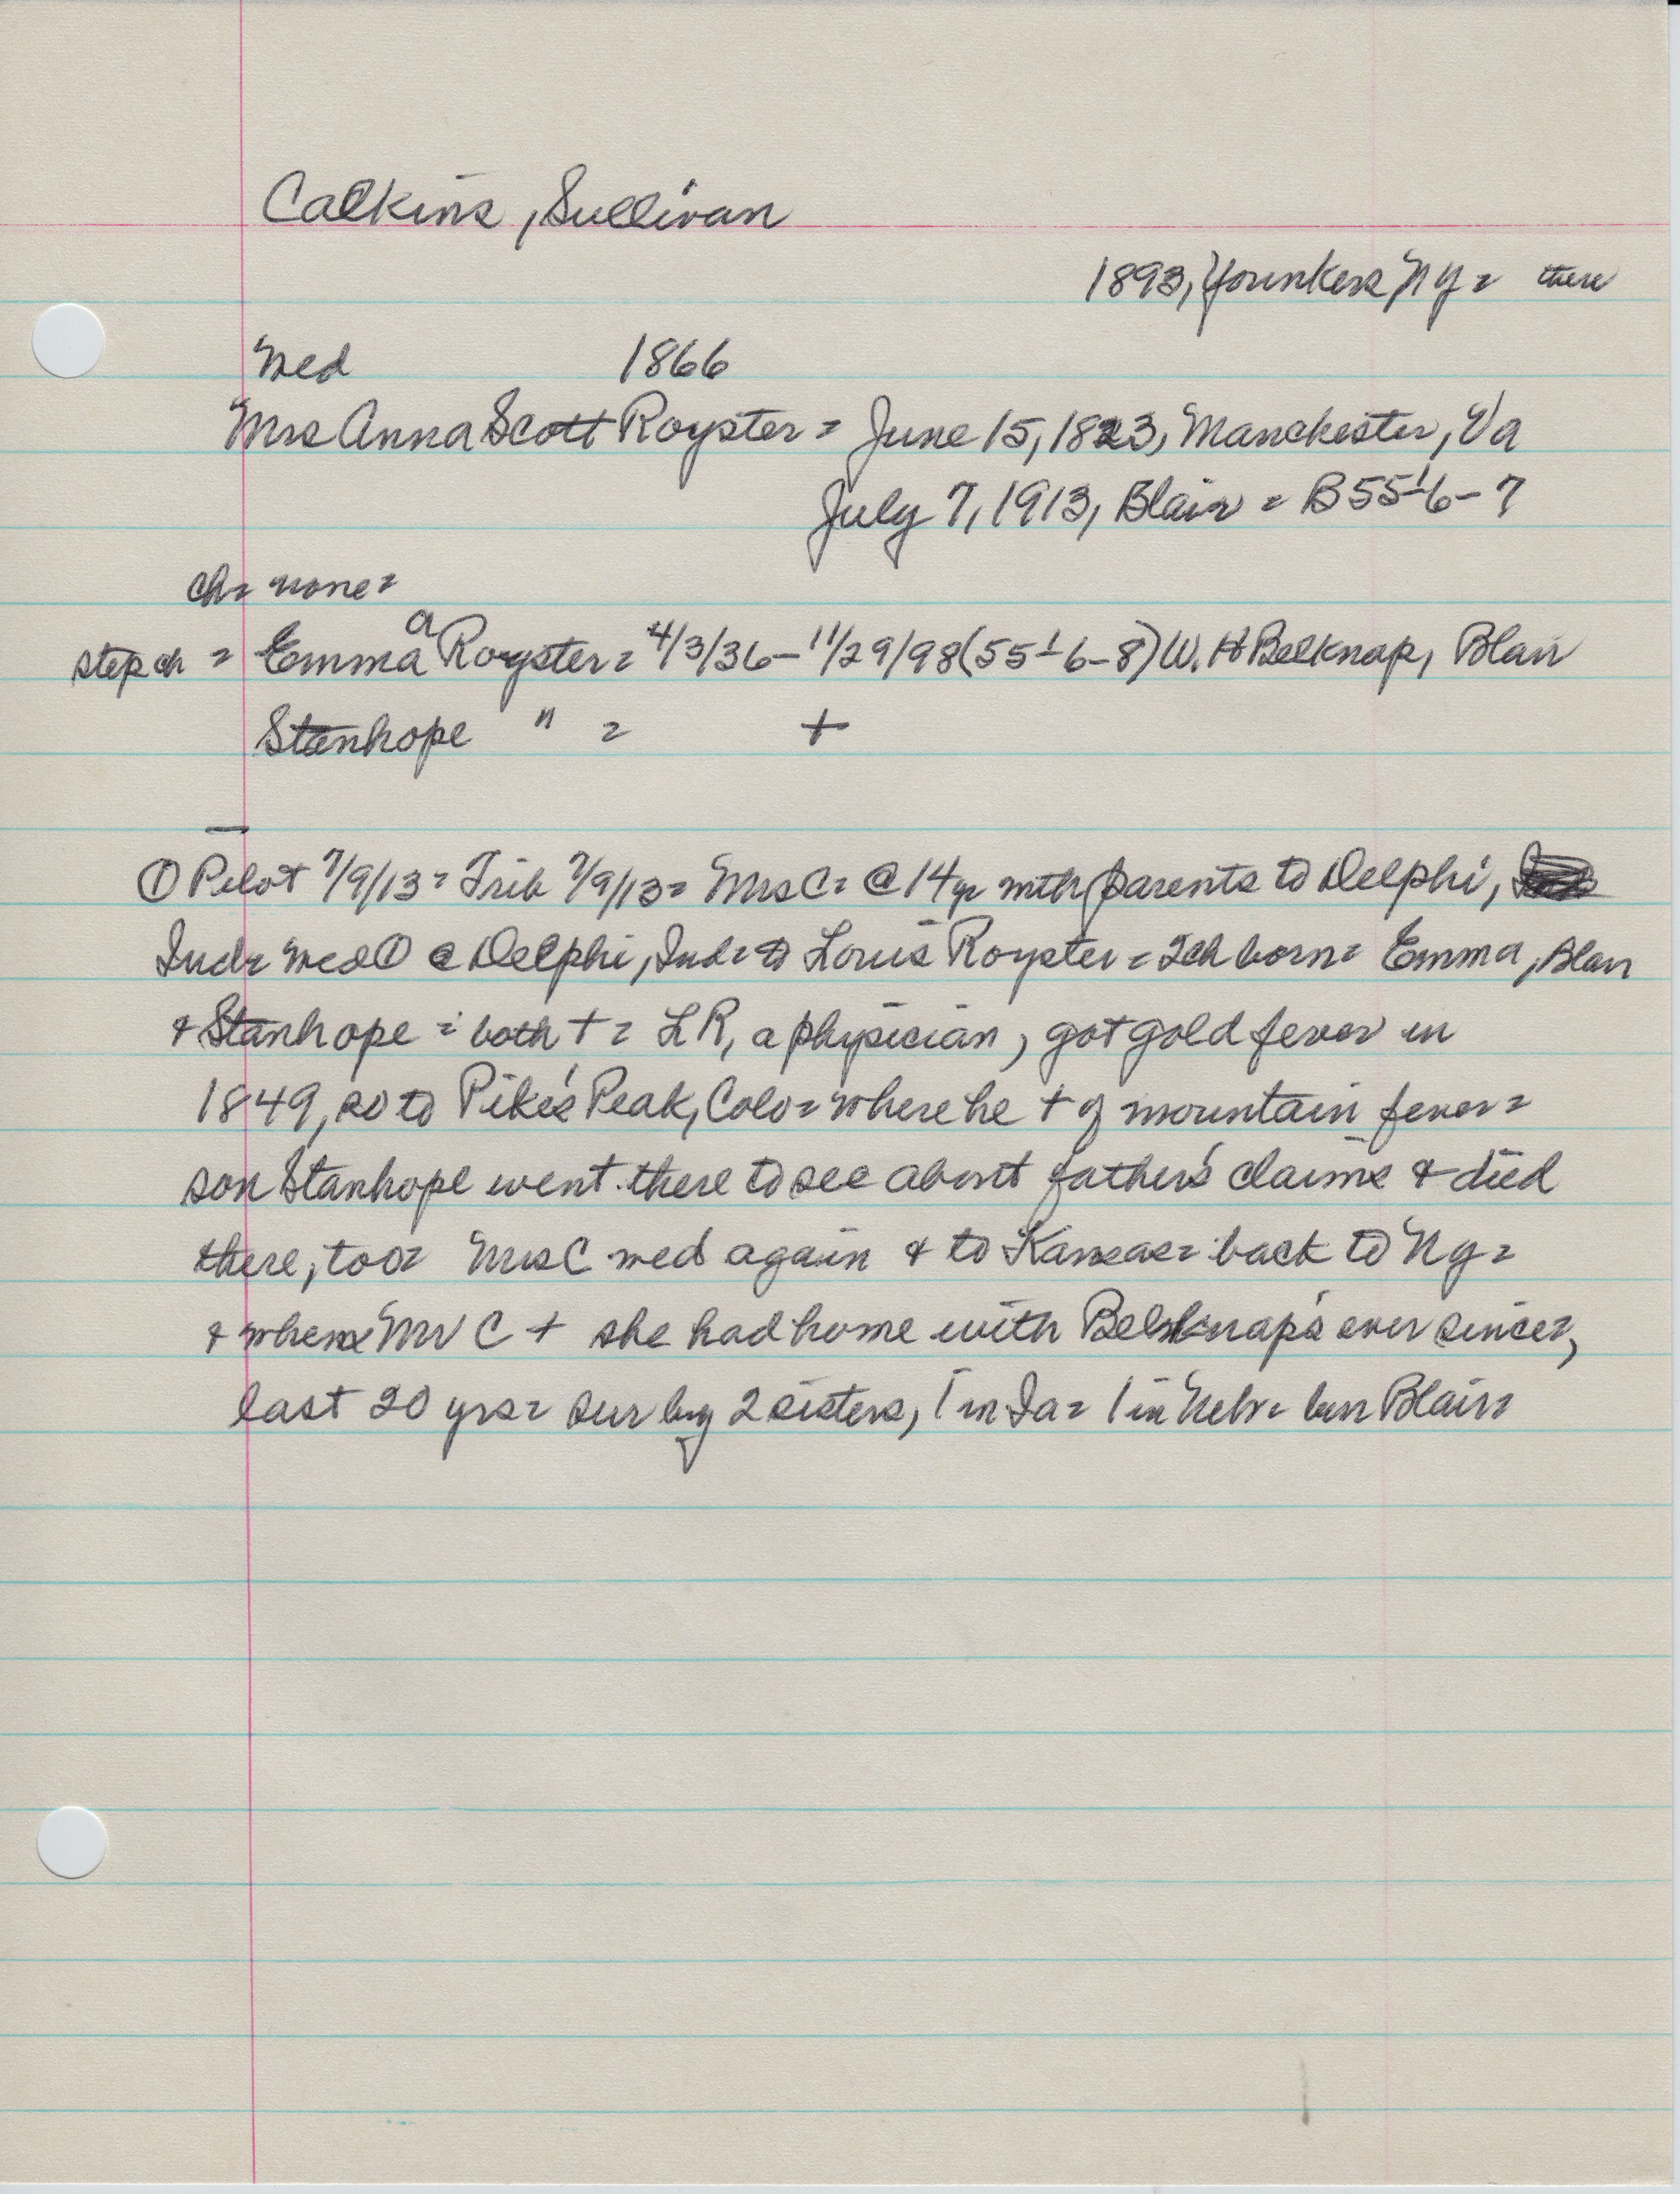 Calkins, Sullivan
1893, Younkers, NY = there
Med 1866
Mrs Anna Scott Royster = June 15, 1823, Manchester, Va
July 7, 1913, Blair = B 55-1-6-7
ch = none =
step ch = Emma a Royster = 4/3/36 - 11/29/98 (55-1-6-8) W. H Belknap, Blair
Stanhope " = +
① Pilot 7/9/13 = Trib 7/9/13 = Mrs C = @ 14 yr with parents to Delphi,
Ind = med ① @ Delphi, Ind = to Louis Royster = 2ch born = Emma, Blair
+ Stanhope = both + = LR, a physician, got gold fever in
1849, so to Pike's Peak, Colo = where he + of mountain fever =
son Stanhope went there to see about father's claims + died
there, too = Mrs C med again + to Kansas = back to NY =
+ when Mr C + she had home with Belknap's ever since,
last 20 yrs = sur by 2 sisters, 1 in Ia = 1 in Nebr = bur Blair =